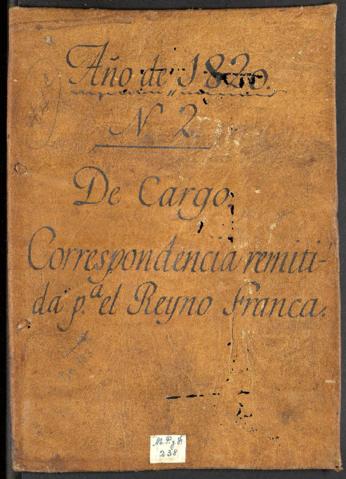 Año de 1820.
N 2.
De Cargo,
Correspondencia remiti-
da p.ª el Reyno Franca.
238